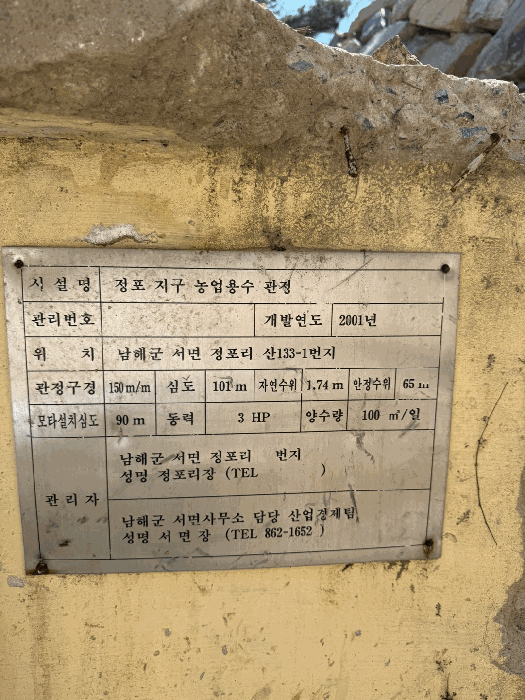 시설명 정포 지구 농업용수 관정
관리번호 개발연도 2001년
위 치 남해군 서면 정포리 산133-1번지
관정구경 150m/m 심도 101m 자연수위 1.74 m 안정수위 65 m
모타설치심도 90 m 동력 3 HP 양수량 100 ㎥/일
관리자
남해군 서면 정포리 번지
성명 정포리장 (TEL )
남해군 서면사무소 담당 산업경제팀
성명 서면장 (TEL 862-1652 )